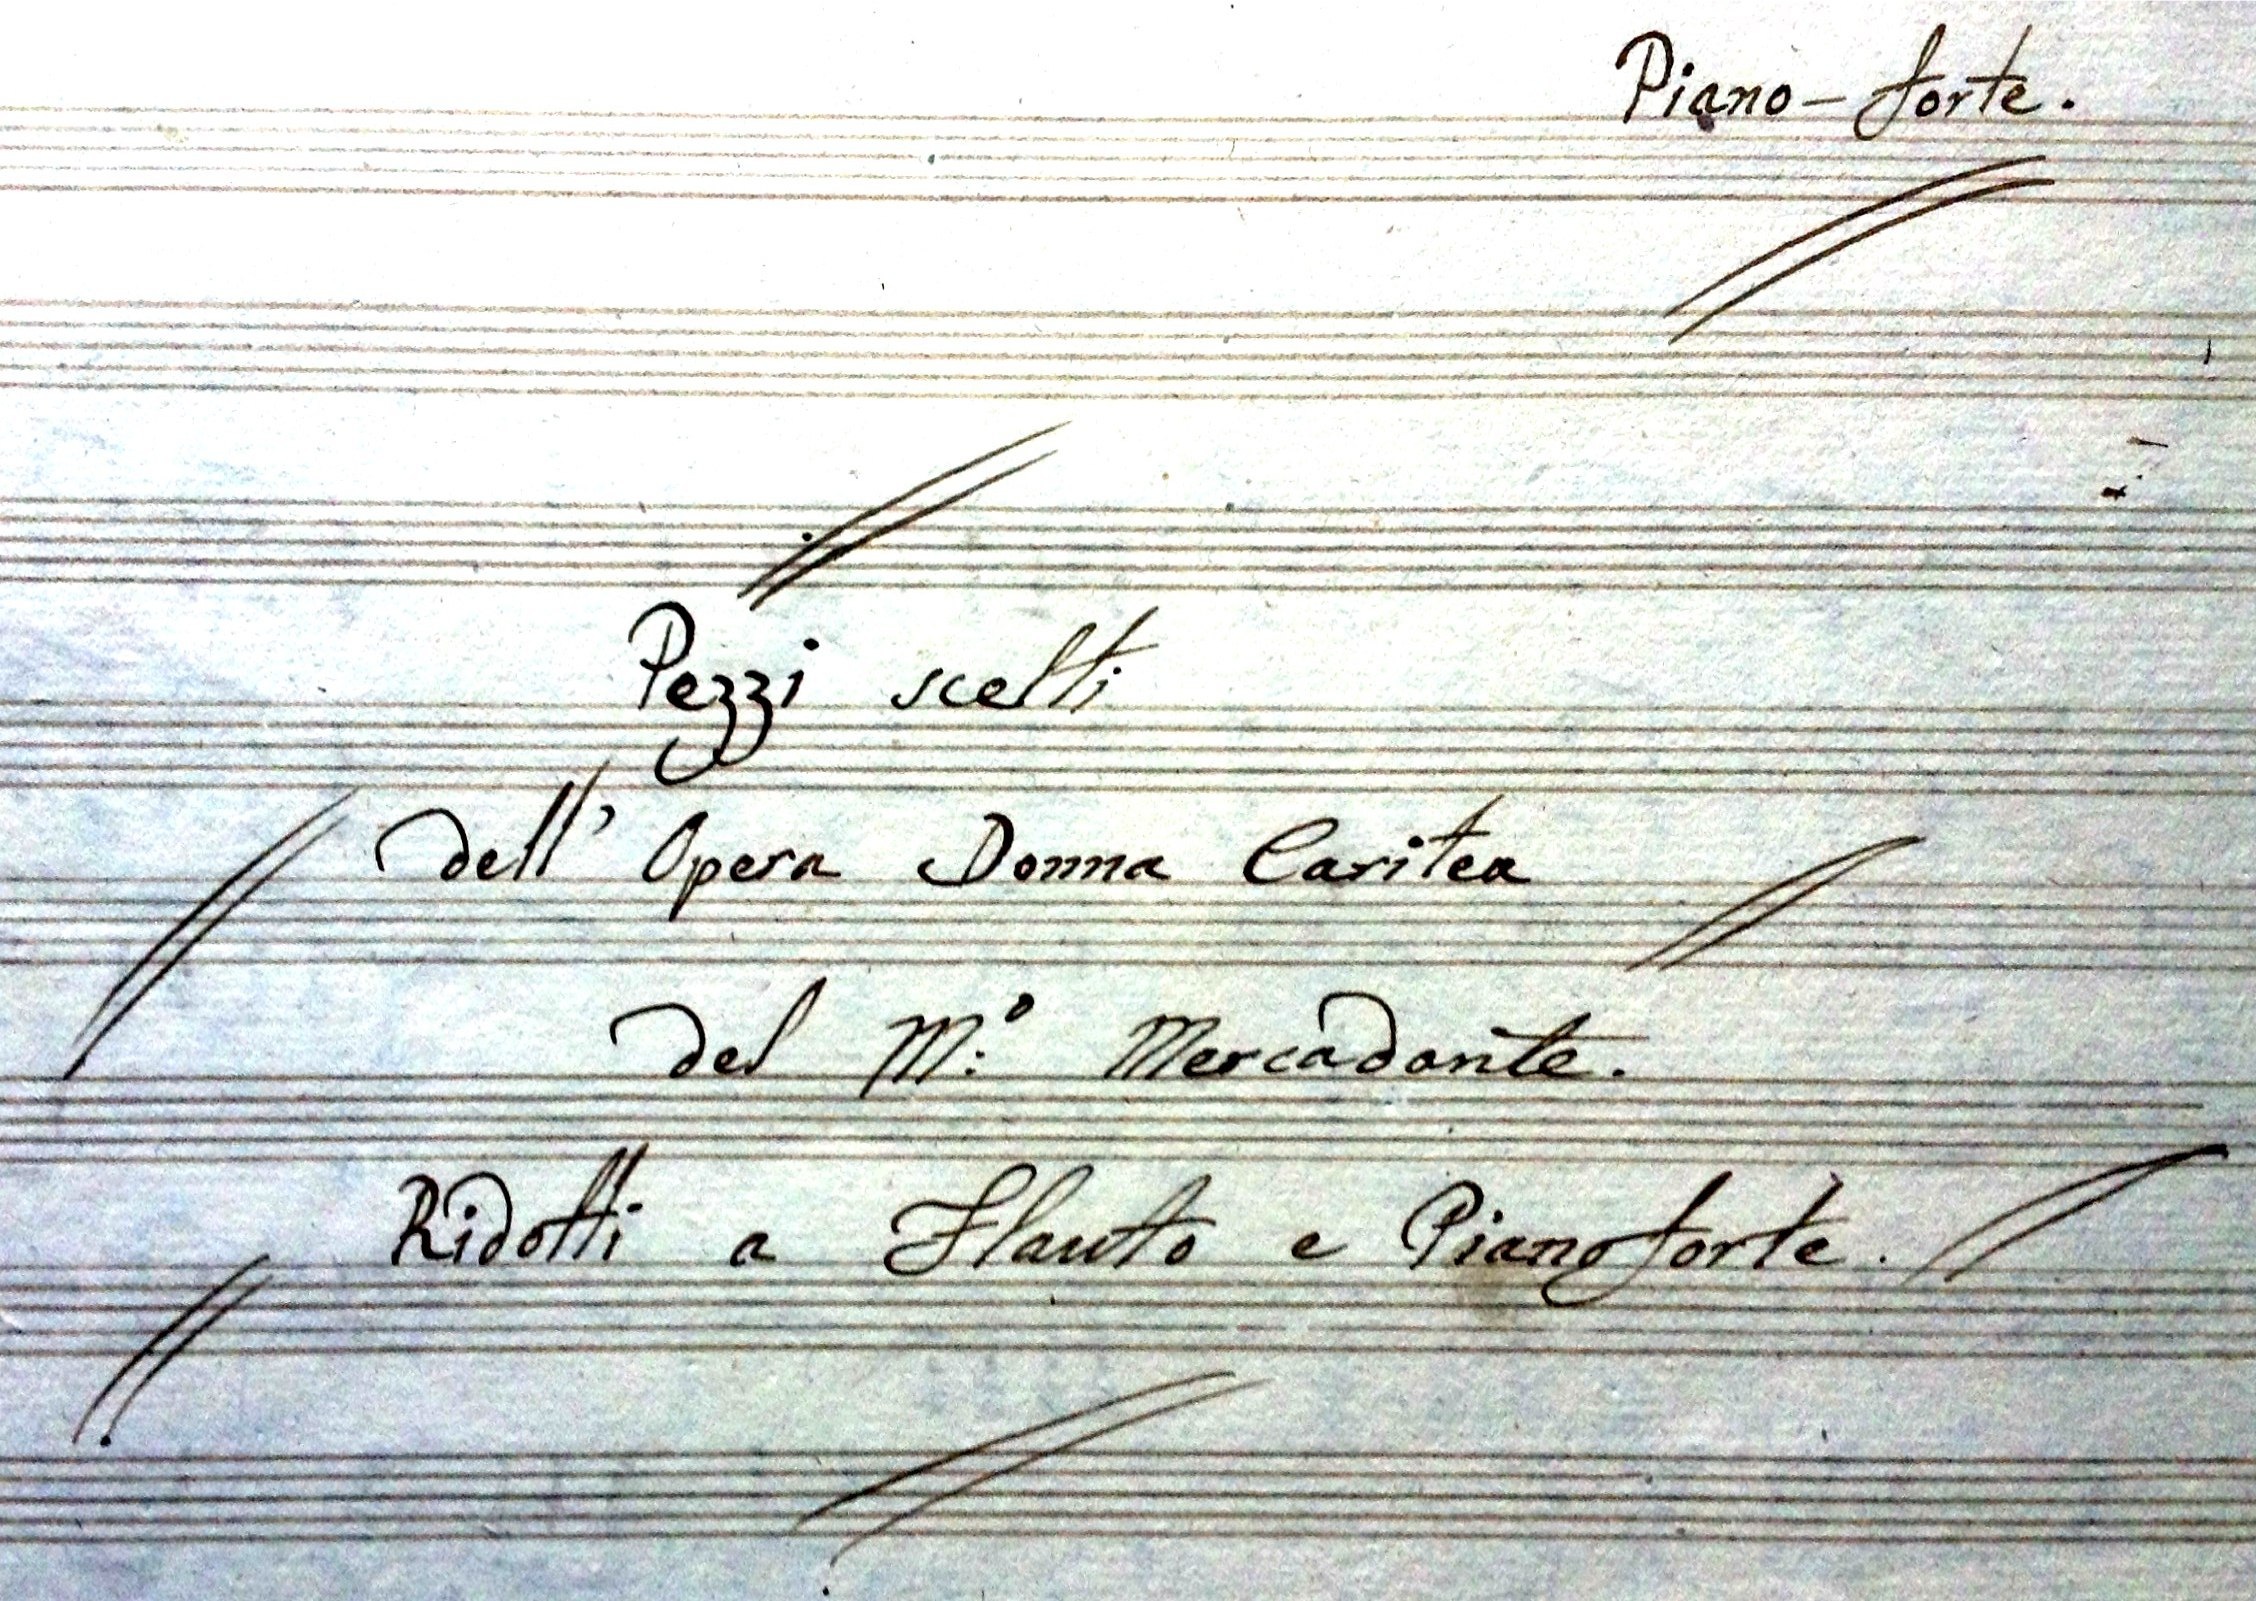 Piano-forte.
Pezzi scelti
dell' Opera Donna Caritea
del M:º Mercadante.
Ridotti a Flauto e Pianoforte.